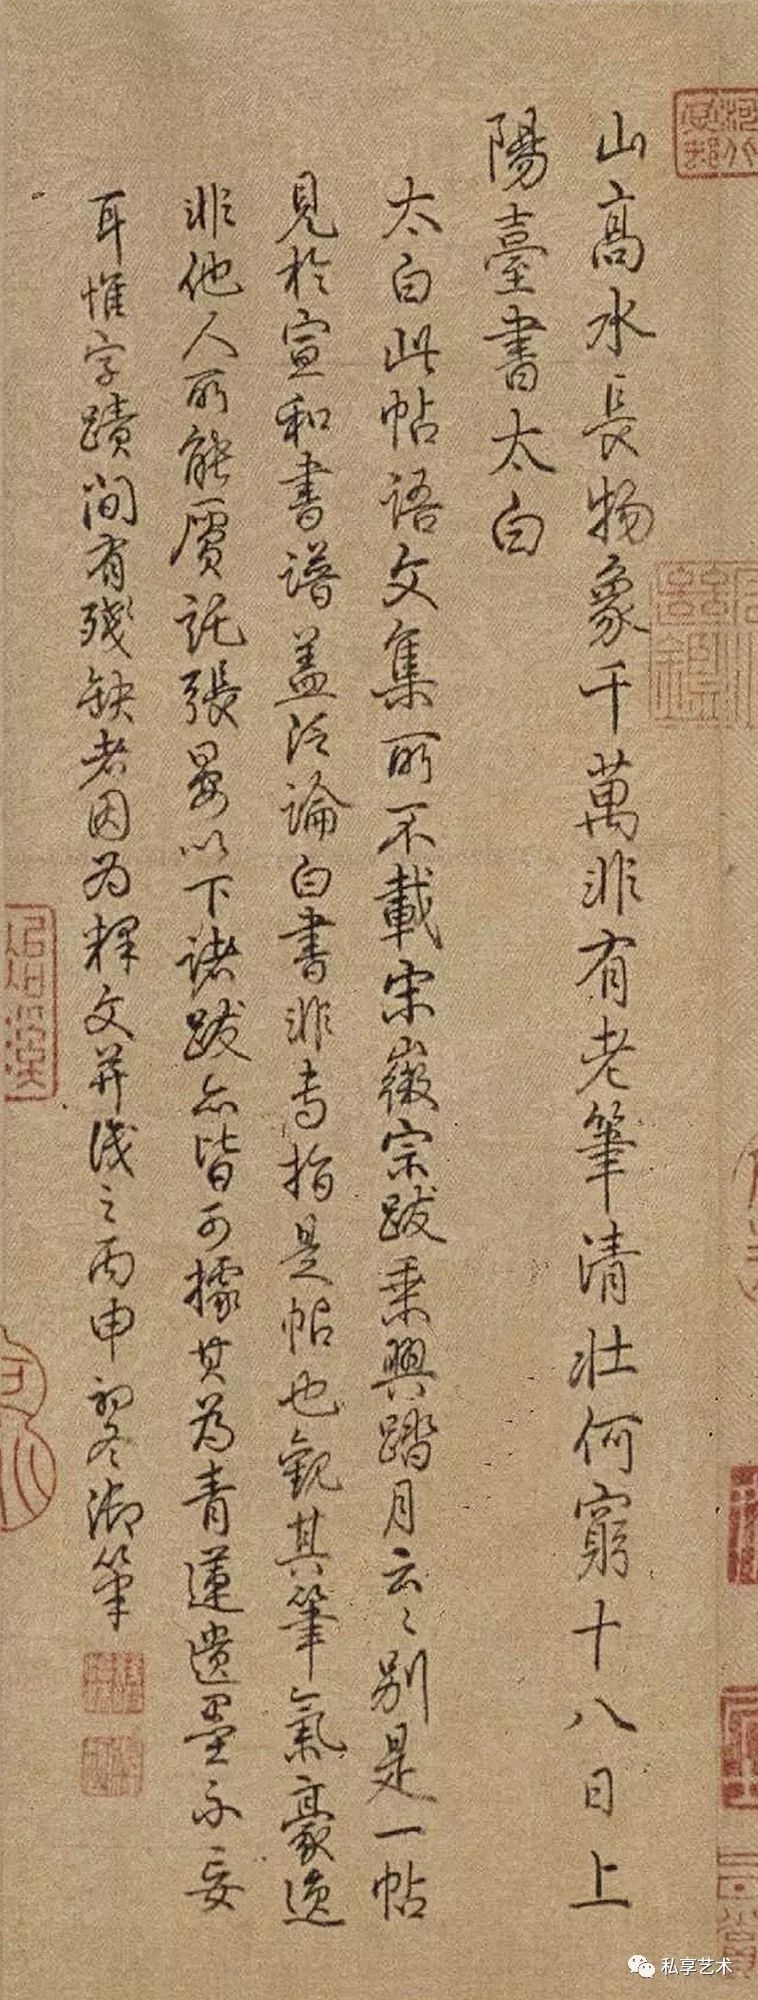 山高水長物象千萬非有老筆清壯何窮十八日上
陽臺書太白
太白此帖語文集所不載宋徽宗跋乘興踏月云〻別是一帖
見於宣和書譜盖泛論白書非專指是帖也觀其筆氣豪逸
非他人所能贋託張晏以下諸跋亦皆可據其為青蓮遺墨不妄
耳惟字蹟間有殘缺者因为釋文并識之丙申初冬御筆
私享艺术